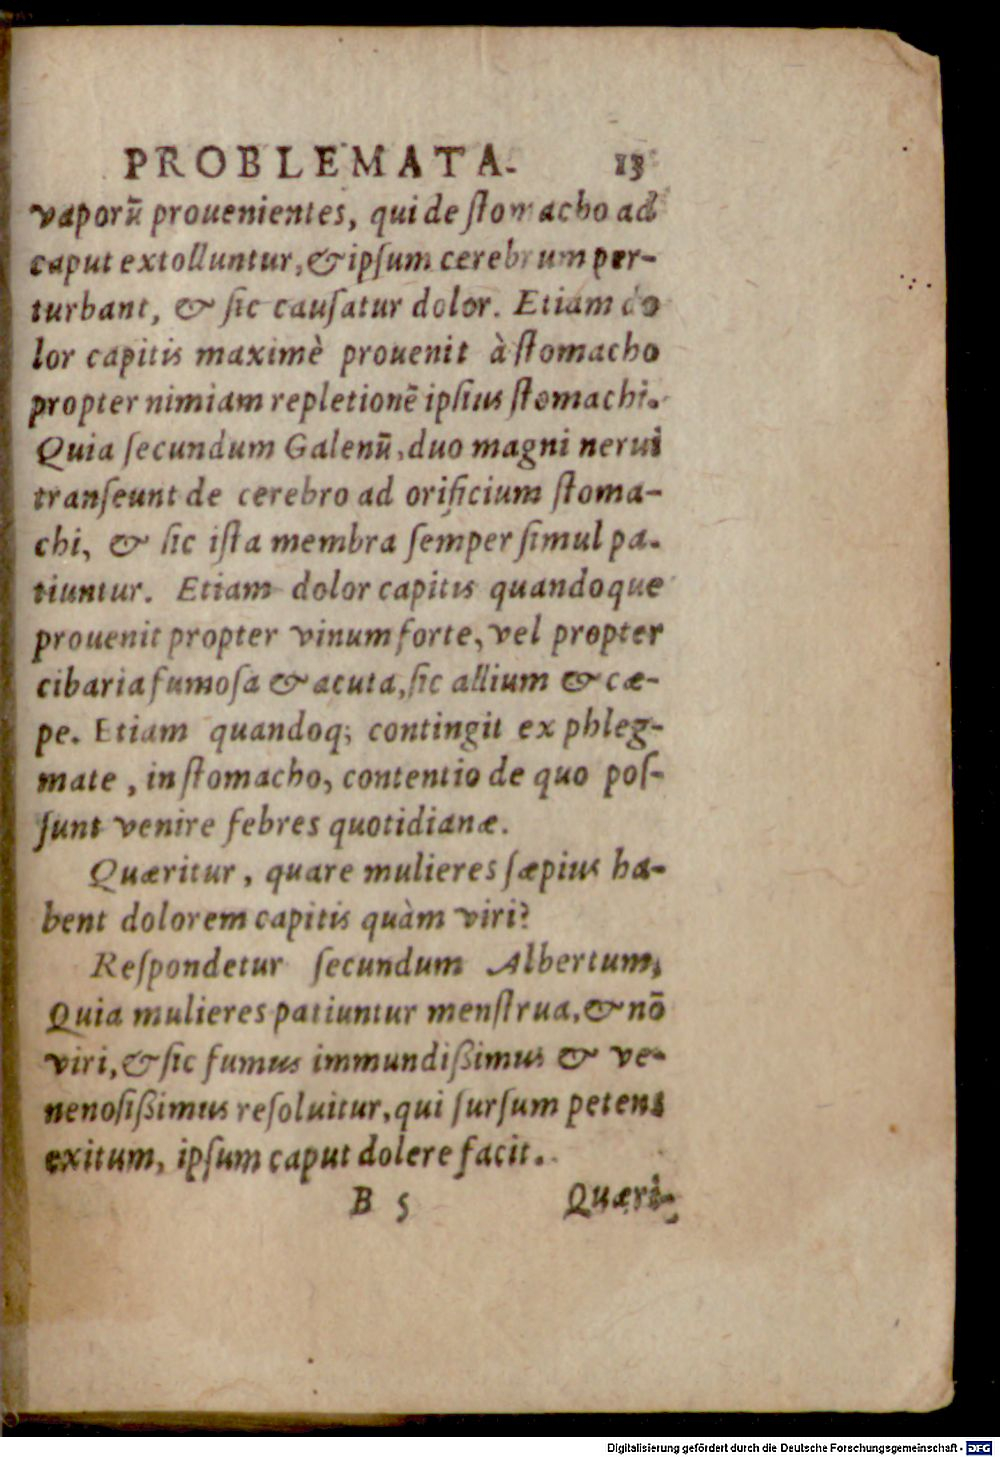 PROBLEMATA. 13
vaporū prouenientes, qui de ſtomacho ad
caput extolluntur, & ipſum cerebrum per-
turbant, & ſic cauſatur dolor. Etiam do
lor capitis maximè prouenit à ſtomacho
propter nimiam repletionē ipſius ſtomachi.
Quia ſecundum Galenū, duo magni nerui
tranſeunt de cerebro ad orificium ſtoma-
chi, & ſic iſta membra ſemper ſimul pa-
tiuntur. Etiam dolor capitis quandoque
prouenit propter vinum forte, vel propter
cibaria fumoſa & acuta, ſic allium & cæ-
pe. Etiam quandoq; contingit ex phleg-
mate, in ſtomacho, contentio de quo poſ-
ſunt venire febres quotidianæ.
Quæritur, quare mulieres ſæpius ha-
bent dolorem capitis quàm viri?
Reſpondetur ſecundum Albertum,
Quia mulieres patiuntur menſtrua, & nō
viri, & ſic fumus immundißimus & ve-
nenoſißimus reſoluitur, qui ſurſum petens
exitum, ipſum caput dolere facit.
B 5 Quæri-
Digitalisierung gefördert durch die Deutsche Forschungsgemeinschaft - DFG